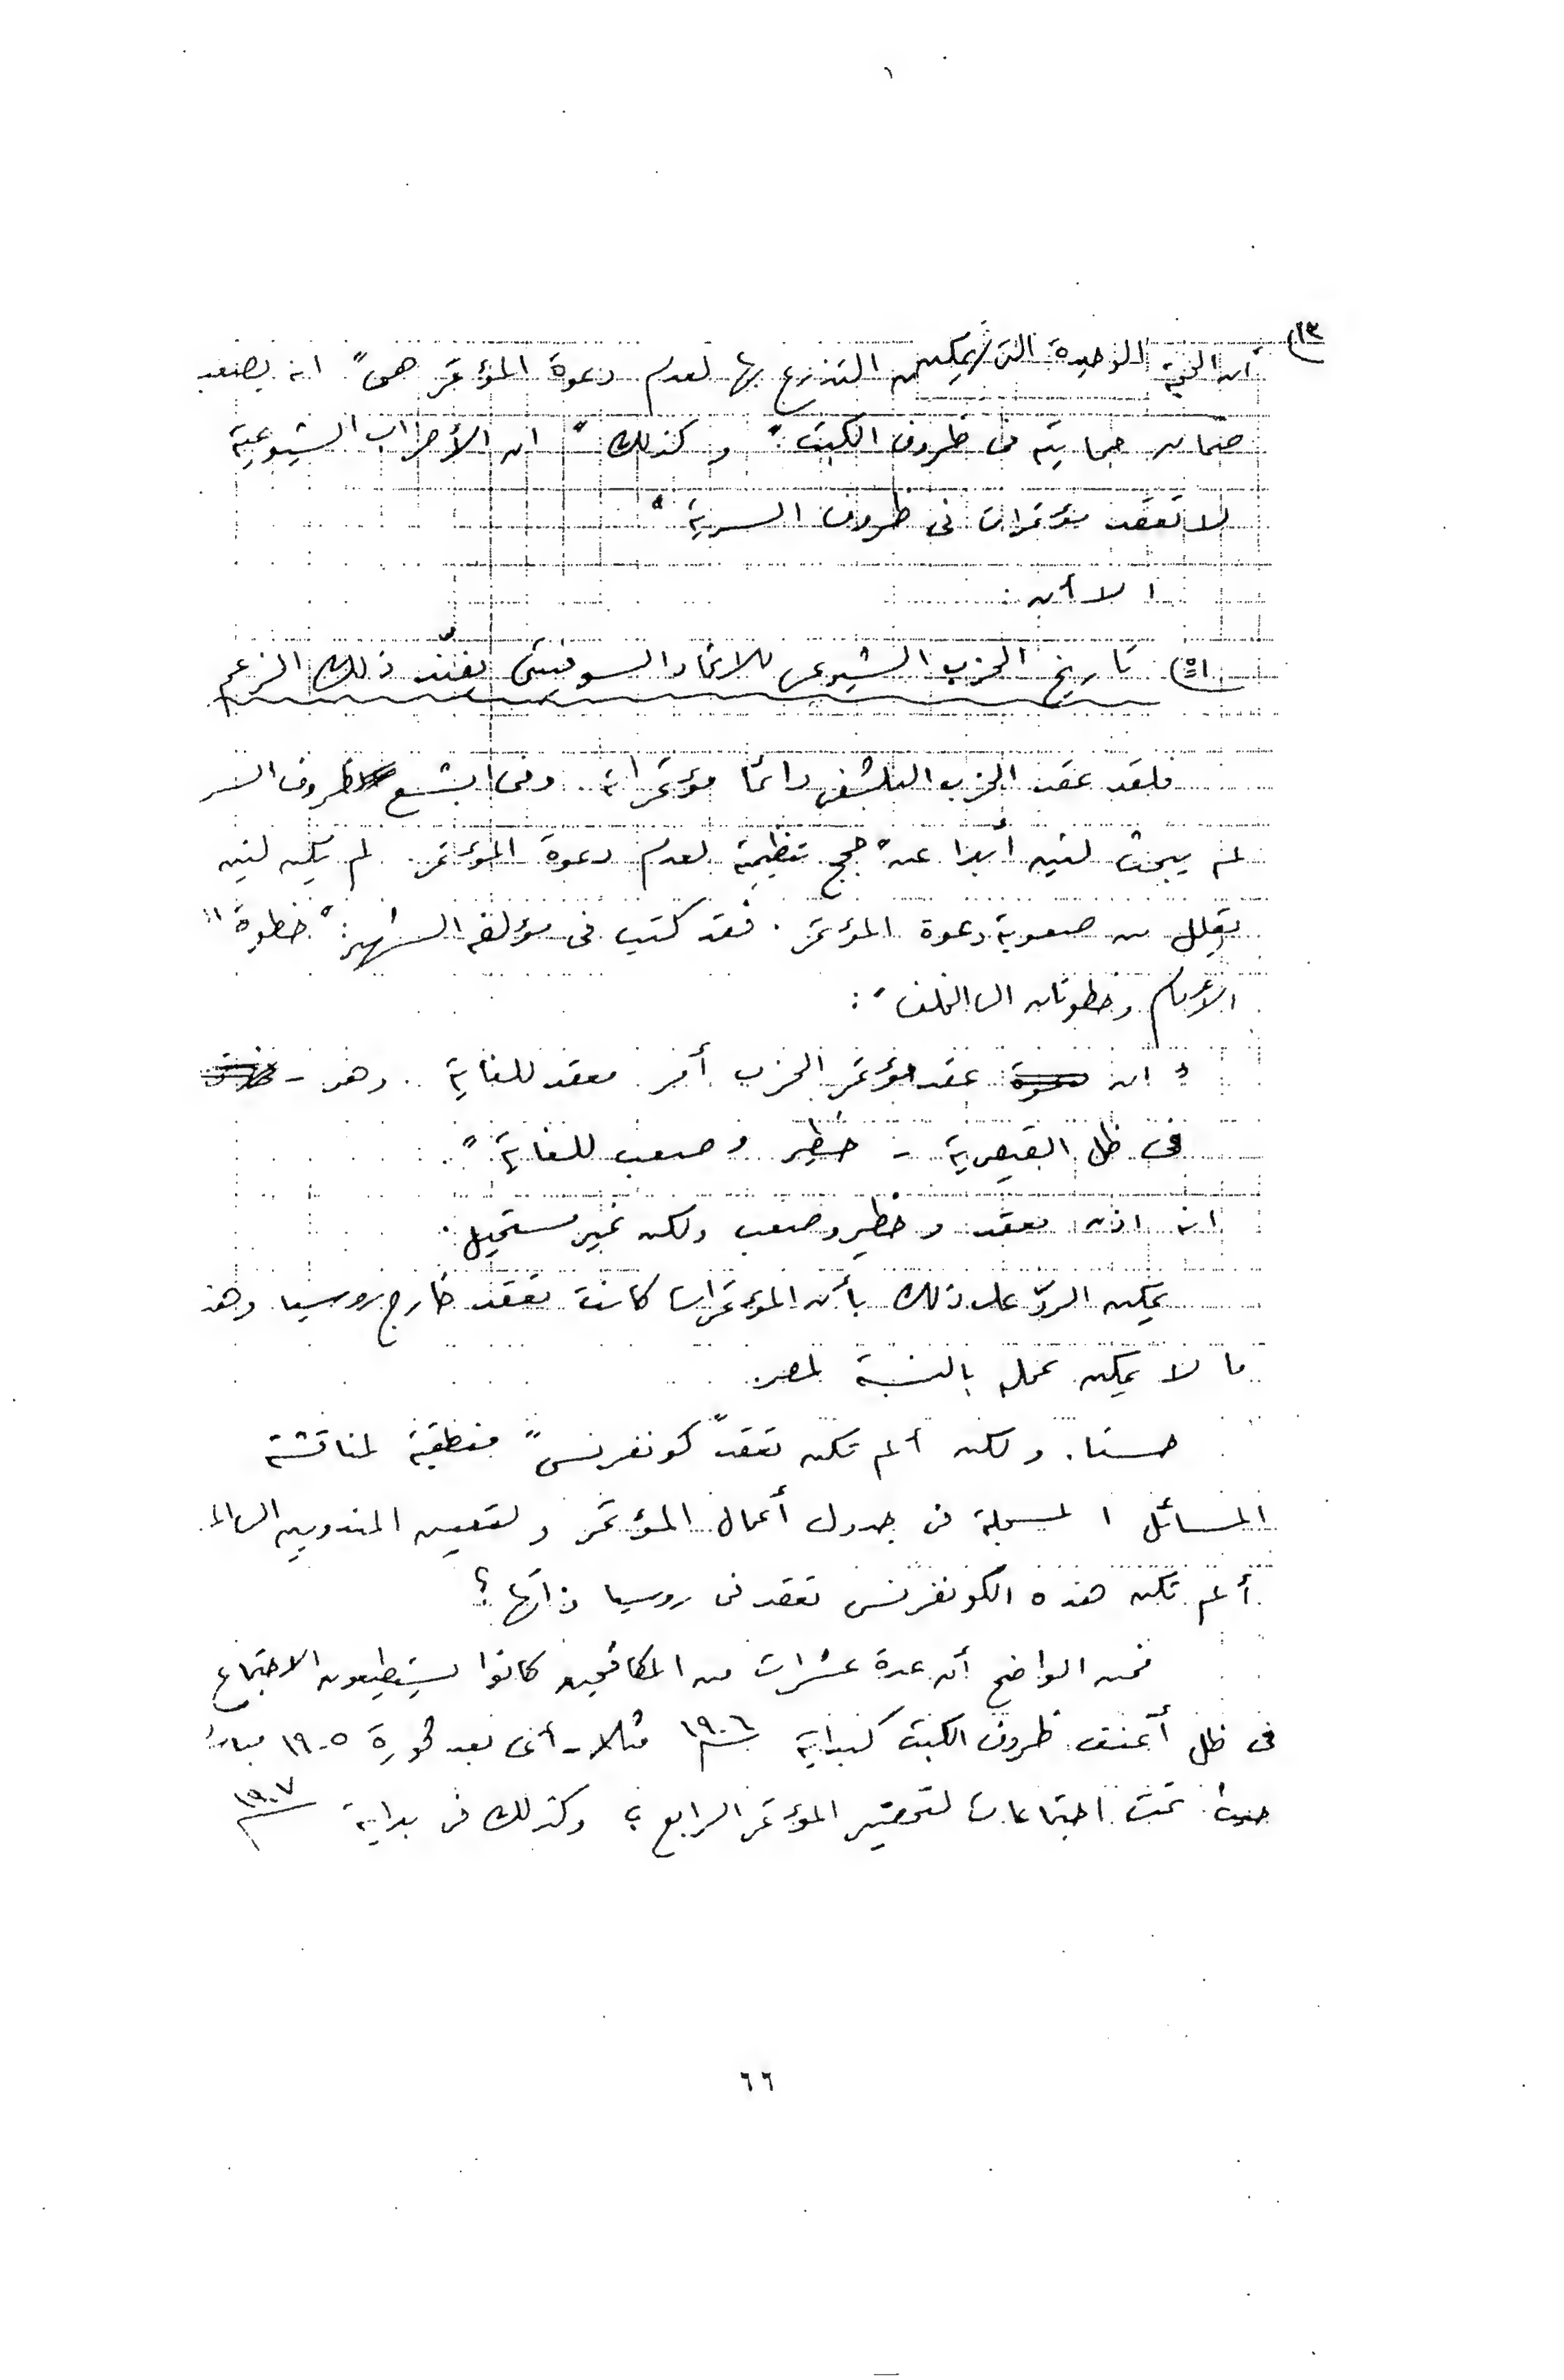 ١٣)
أن الحجة الوحيدة التى يمكن التذرع بها لعدم دعوة المؤتمر هى " انه يصعب
ضمان حمايته فى ظروف الكبت " وكذلك " ان الأحزاب الشيوعية
لا تعقد مؤتمرات فى ظروف السرية "
الا أن :
١٥) تاريخ الحزب الشيوعى للاتحاد السوفيتى يفنّد ذلك الزعم
فلقد عقد الحزب البلشفى دائما مؤتمراته . وفى ابشع ظروف السر
لم يبحث لنين أبدا عن " حجج تنظيمية لعدم دعوة المؤتمر . لم يكن لنين
يقلل من صعوبة دعوة المؤتمر . فقد كتب فى مؤلفه الشهير : " خطوة "
الأمام وخطوتان الى الخلف " :
" ان عقد مؤتمر الحزب أمر معقد للغاية .. وهو -
فى ظل القيصرية - خطير وصعب للغاية " .
انه اذن معقد وخطير وصعب ولكن غير مستحيل .
يمكن الردّ على ذلك بأن المؤتمرات كانت تعقد خارج روسيا وهذ
ما لا يمكن عمله بالنسبة لمصر .
حسنا . ولكن ألم تكن تعقد " كونفرنس " منطقية لمناقشة
المسائل المسجلة فى جدول أعمال المؤتمر ولتعيين المندوبين الى الم
ألم تكن هذه الكونفرنس تعقد فى روسيا ذاتها ؟
فمن الواضح أن عدة عشرات من المكافحين كانوا يستطيعون الاجتماع
فى ظل أعنف ظروف الكبت كبداية ١٩٠٦ مثلا - أى بعد ثورة ١٩٠٥
حيث تمت اجتماعات لتحضير المؤتمر الرابع ؛ وكذلك فى بداية ١٩٠٧
٦٦